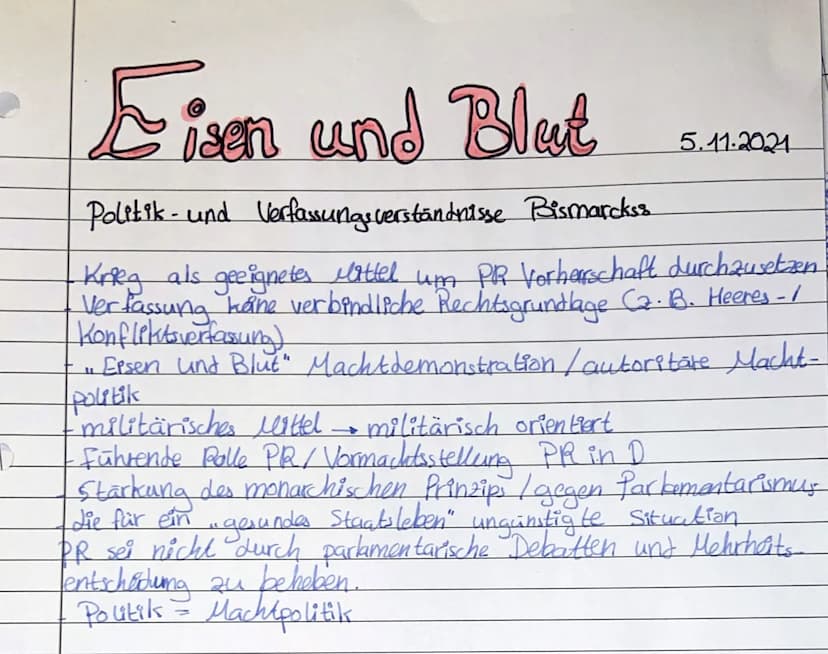 Eisen und Blut
5.11.2021
Politik- und Verfassungsverständnisse Bismarckss
- Krieg als geeignetes Mittel um PR Vorherrschaft durchzusetzen
- Verfassung keine verbindliche Rechtsgrundlage (z.B. Heeres-/
Konfliktsverfasung)
- „Eisen und Blut" Machtdemonstration / autoritäre Macht-
politik
- militärisches Mittel → militärisch orientiert
- Führende Rolle PR / Vormachtsstellung PR in D
- Stärkung des monarchischen Prinzips / gegen Parlamentarismus
- die für ein „gesundes Staatsleben" ungünstigte Situation
PR sei nicht durch parlamentarische Debatten und Mehrheits-
entscheidung zu beheben.
- Politik = Machtpolitik